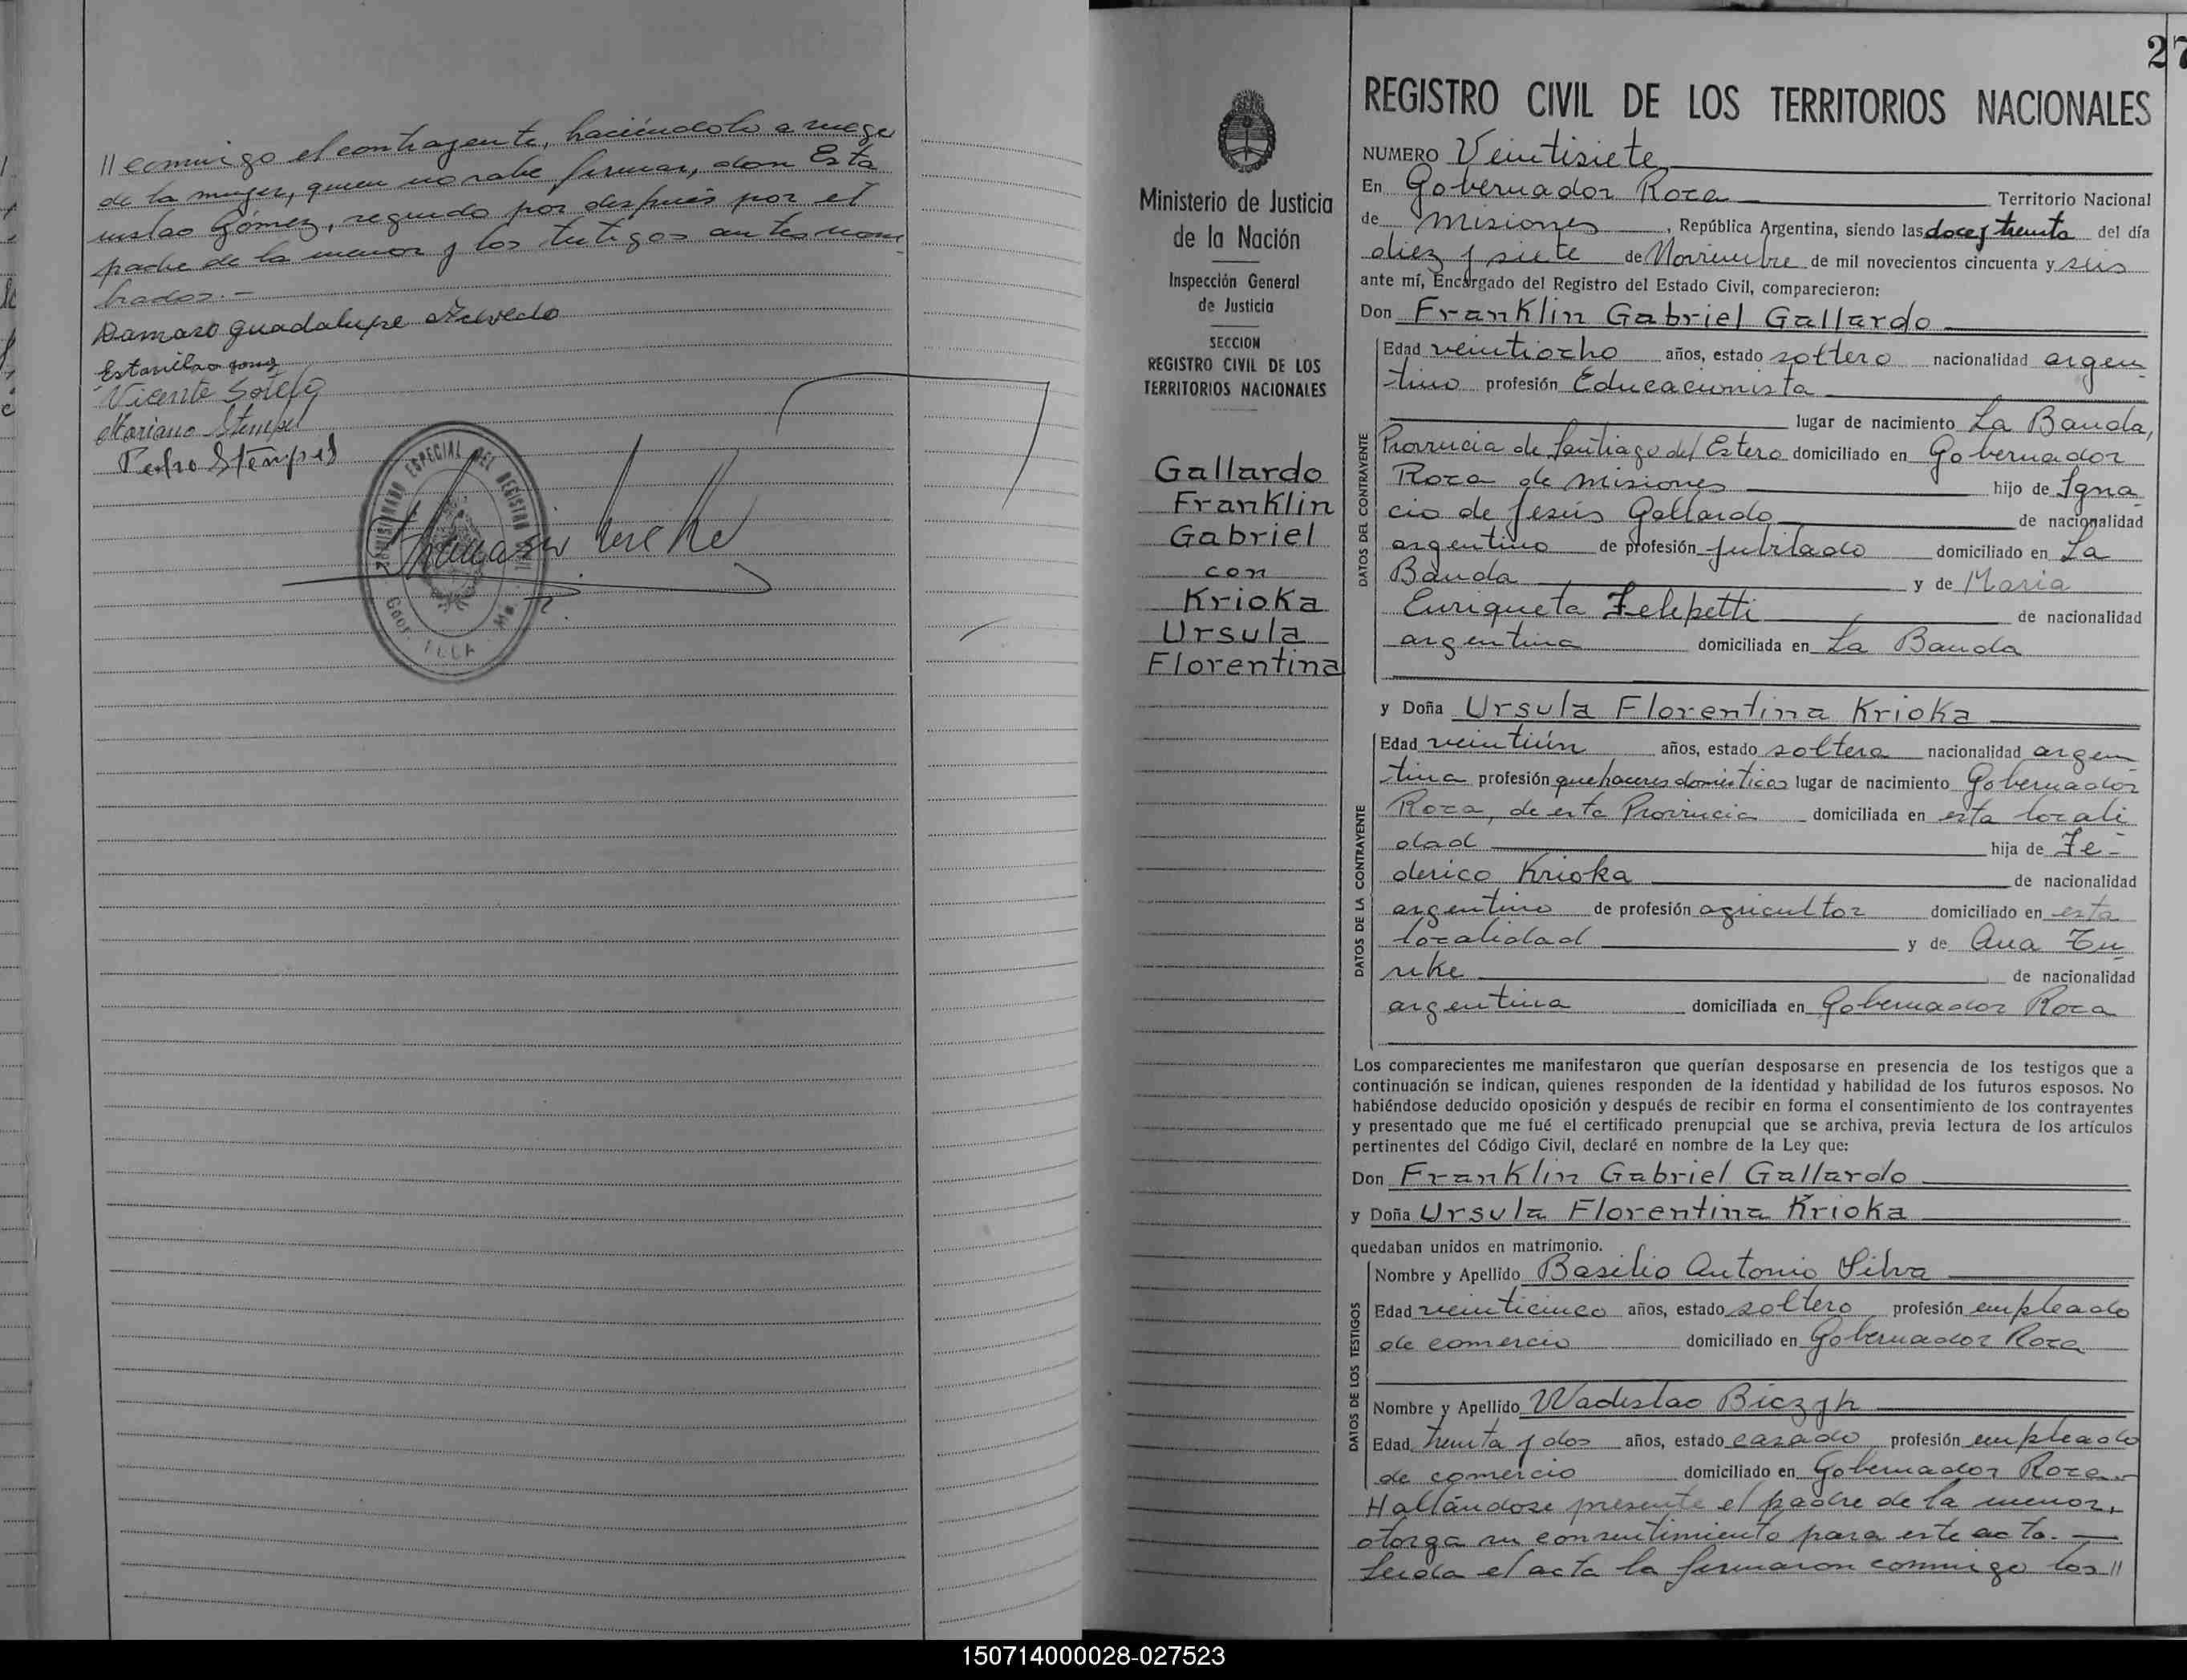 // conmigo el contrayente, haciéndolo a ruego
de la mujer, quien no sabe firmar, don Esta
nislao Gómez, seguido por después por el
padre de la menor y los testigos antes nom-
brados.-
Damaso Guadalupe Acevedo
Estanislao Gomez
Vicente Sotelo
Mariano Stempel
Pedro Stempel
COMISIONADO ESPECIAL DEL REGISTRO CIVIL
GOOR. ROCA Ms.
27
REGISTRO CIVIL DE LOS TERRITORIOS NACIONALES
Ministerio de Justicia
de la Nación
Inspección General
de Justicia
SECCION
REGISTRO CIVIL DE LOS
TERRITORIOS NACIONALES
Gallardo
Franklin
Gabriel
con
Krioka
Ursula
Florentina
NUMERO Veintisiete
En Gobernador Roca Territorio Nacional
de Misiones, República Argentina, siendo las doce y treinta del día
diez y siete de Noviembre de mil novecientos cincuenta y seis
ante mí, Encargado del Registro del Estado Civil, comparecieron:
Don Franklin Gabriel Gallardo
DATOS DEL CONTRAYENTE
Edad veintiocho años, estado soltero nacionalidad argen-
tino profesión Educacionista
lugar de nacimiento La Banda,
Provincia de Santiago del Estero domiciliado en Gobernador
Roca de Misiones hijo de Igna
cio de Jesús Gallardo de nacionalidad
argentino de profesión jubilado domiciliado en La
Banda y de Maria
Enriqueta Felepetti de nacionalidad
argentina domiciliada en La Banda
y Doña Ursula Florentina Krioka
DATOS DE LA CONTRAYENTE
Edad veintiún años, estado soltera nacionalidad argen-
tina profesión quehaceres domésticos lugar de nacimiento Gobernador
Roca, de esta Provincia domiciliada en esta locali
dad hija de Fe-
derico Krioka de nacionalidad
argentino de profesión agricultor domiciliado en esta
localidad y de Ana Zu-
nke de nacionalidad
argentina domiciliada en Gobernador Roca
Los comparecientes me manifestaron que querían desposarse en presencia de los testigos que a
continuación se indican, quienes responden de la identidad y habilidad de los futuros esposos. No
habiéndose deducido oposición y después de recibir en forma el consentimiento de los contrayentes
y presentado que me fué el certificado prenupcial que se archiva, previa lectura de los artículos
pertinentes del Código Civil, declaré en nombre de la Ley que:
Don Franklin Gabriel Gallardo
y Doña Ursula Florentina Krioka
quedaban unidos en matrimonio.
DATOS DE LOS TESTIGOS
Nombre y Apellido Basilio Antonio Silva
Edad veinticinco años, estado soltero profesión empleado
de comercio domiciliado en Gobernador Roca
Nombre y Apellido Wadislao Biczyk
Edad treinta y dos años, estado casado profesión empleado
de comercio domiciliado en Gobernador Roca.-
Hallándose presente el padre de la menor,
otorga su consentimiento para este acto.-
Leída el acta la firmaron conmigo los //
150714000028-027523